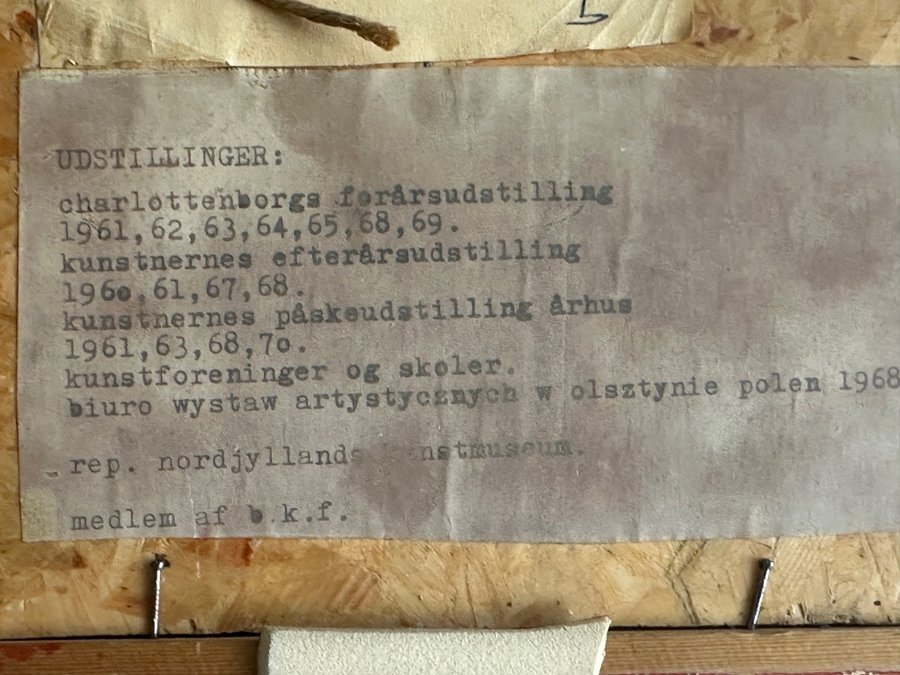 UDSTILLINGER:
charlottenborgs forårsudstilling
1961,62,63,64,65,68,69.
kunstnernes efterårsudstilling
196o,61,67,68.
kunstnernes påskeudstilling århus
1961,63,68,7o.
kunstforeninger og skoler.
biuro wystaw artystycznych w olsztynie polen 1968
rep. nordjyllands kunstmuseum.
medlem af b.k.f.